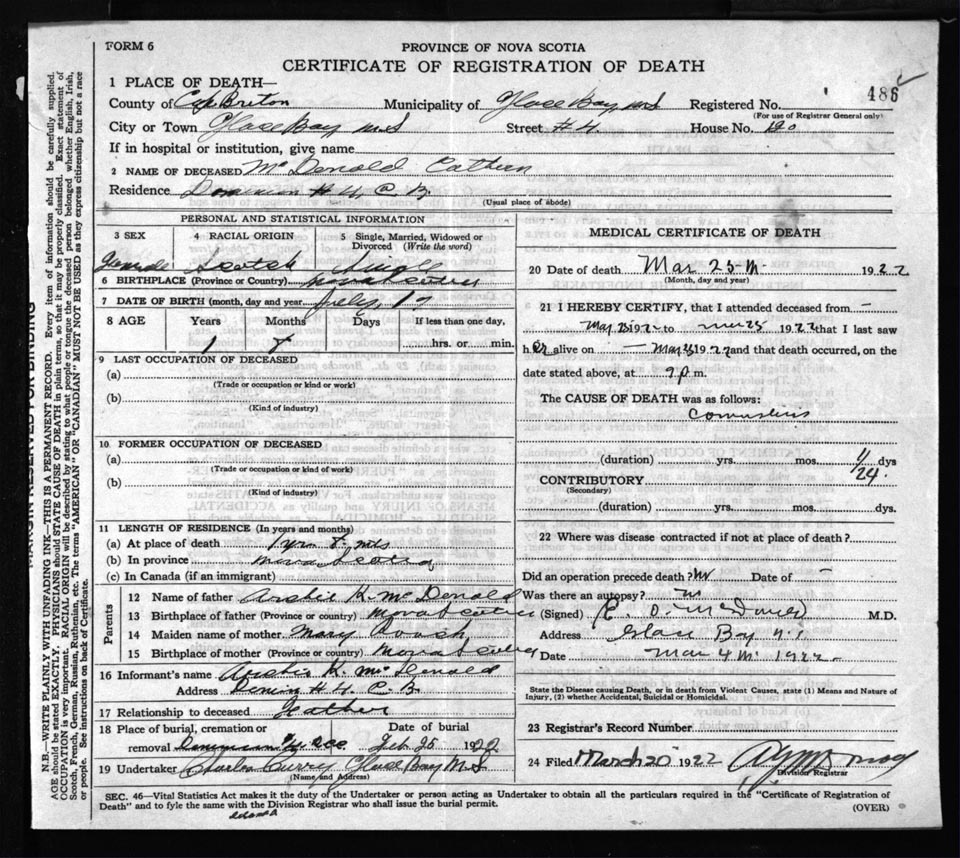 FORM 6
PROVINCE OF NOVA SCOTIA
CERTIFICATE OF REGISTRATION OF DEATH
486
1 PLACE OF DEATH—
County of Cape Breton Municipality of Glace Bay N.S Registered No.
(For use of Registrar General only)
City or Town Glace Bay N.S Street #4. House No. 120
If in hospital or institution, give name
2 NAME OF DECEASED McDonald
Residence Dominion #4 C.B.
(Usual place of abode)
PERSONAL AND STATISTICAL INFORMATION
3 SEX
4 RACIAL ORIGIN
5 Single, Married, Widowed or Divorced (Write the word)
Female Scotch Single
6 BIRTHPLACE (Province or Country) Nova Scotia
7 DATE OF BIRTH (month, day and year) July 17
8 AGE Years Months Days If less than one day,
1 8 hrs. or min.
9 LAST OCCUPATION OF DECEASED
(a)
(Trade or occupation or kind or work)
(b)
(Kind of industry)
10 FORMER OCCUPATION OF DECEASED
(a)
(Trade or occupation or kind of work)
(b)
(Kind of industry)
11 LENGTH OF RESIDENCE (In years and months)
(a) At place of death 1 yrs 8 mts
(b) In province Nova Scotia
(c) In Canada (if an immigrant)
Parents
12 Name of father Archie K. McDonald
13 Birthplace of father (Province or country) Nova Scotia
14 Maiden name of mother Mary
15 Birthplace of mother (Province or country) Nova Scotia
16 Informant's name Archie K. McDonald
Address #4 C.B.
17 Relationship to deceased Father
18 Place of burial, cremation or removal Date of burial
Feb 25 1922
19 Undertaker Charles Curry Glace Bay N.S
(Name and Address)
MEDICAL CERTIFICATE OF DEATH
20 Date of death Mar 1922
(Month, day and year)
21 I HEREBY CERTIFY, that I attended deceased from
Mar 1922 to 1922 that I last saw
her alive on Mar 1922 and that death occurred, on the
date stated above, at 9 p m.
The CAUSE OF DEATH was as follows:
(duration) yrs. mos. 1/24. dys
CONTRIBUTORY
(Secondary)
(duration) yrs. mos. dys.
22 Where was disease contracted if not at place of death?
Did an operation precede death? No Date of –
Was there an autopsy? no
(Signed) M.D.
Address Glace Bay N.S.
Date Mar 1922
State the Disease causing Death, or in death from Violent Causes, state (1) Means and Nature of Injury, (2) whether Accidental, Suicidal or Homicidal.
23 Registrar's Record Number
24 Filed March 20 1922
Division Registrar
SEC. 46—Vital Statistics Act makes it the duty of the Undertaker or person acting as Undertaker to obtain all the particulars required in the "Certificate of Registration of
Death" and to fyle the same with the Division Registrar who shall issue the burial permit. (OVER)
MARGIN RESERVED FOR BINDING
N.B.—WRITE PLAINLY WITH UNFADING INK—THIS IS A PERMANENT RECORD. Every item of information should be carefully supplied.
AGE should be stated EXACTLY. PHYSICIANS should STATE CAUSE OF DEATH in plain terms, so that it may be properly classified. Exact statement of
OCCUPATION is very important. RACIAL ORIGIN will be described by stating to what people or tongue the deceased person belonged whether English, Irish,
Scotch, French, German, Russian, Ruthenian, etc. The terms "AMERICAN" OR "CANADIAN" MUST NOT BE USED as they express citizenship but not a race
or people. See instructions on back of Certificate.